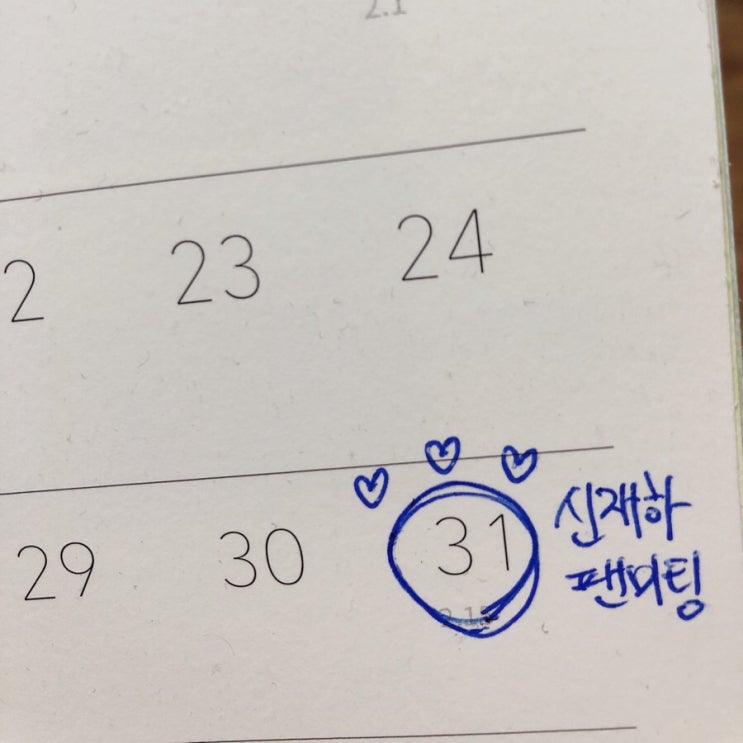 2.1
23
24
29
30
31
신재하
팬미팅